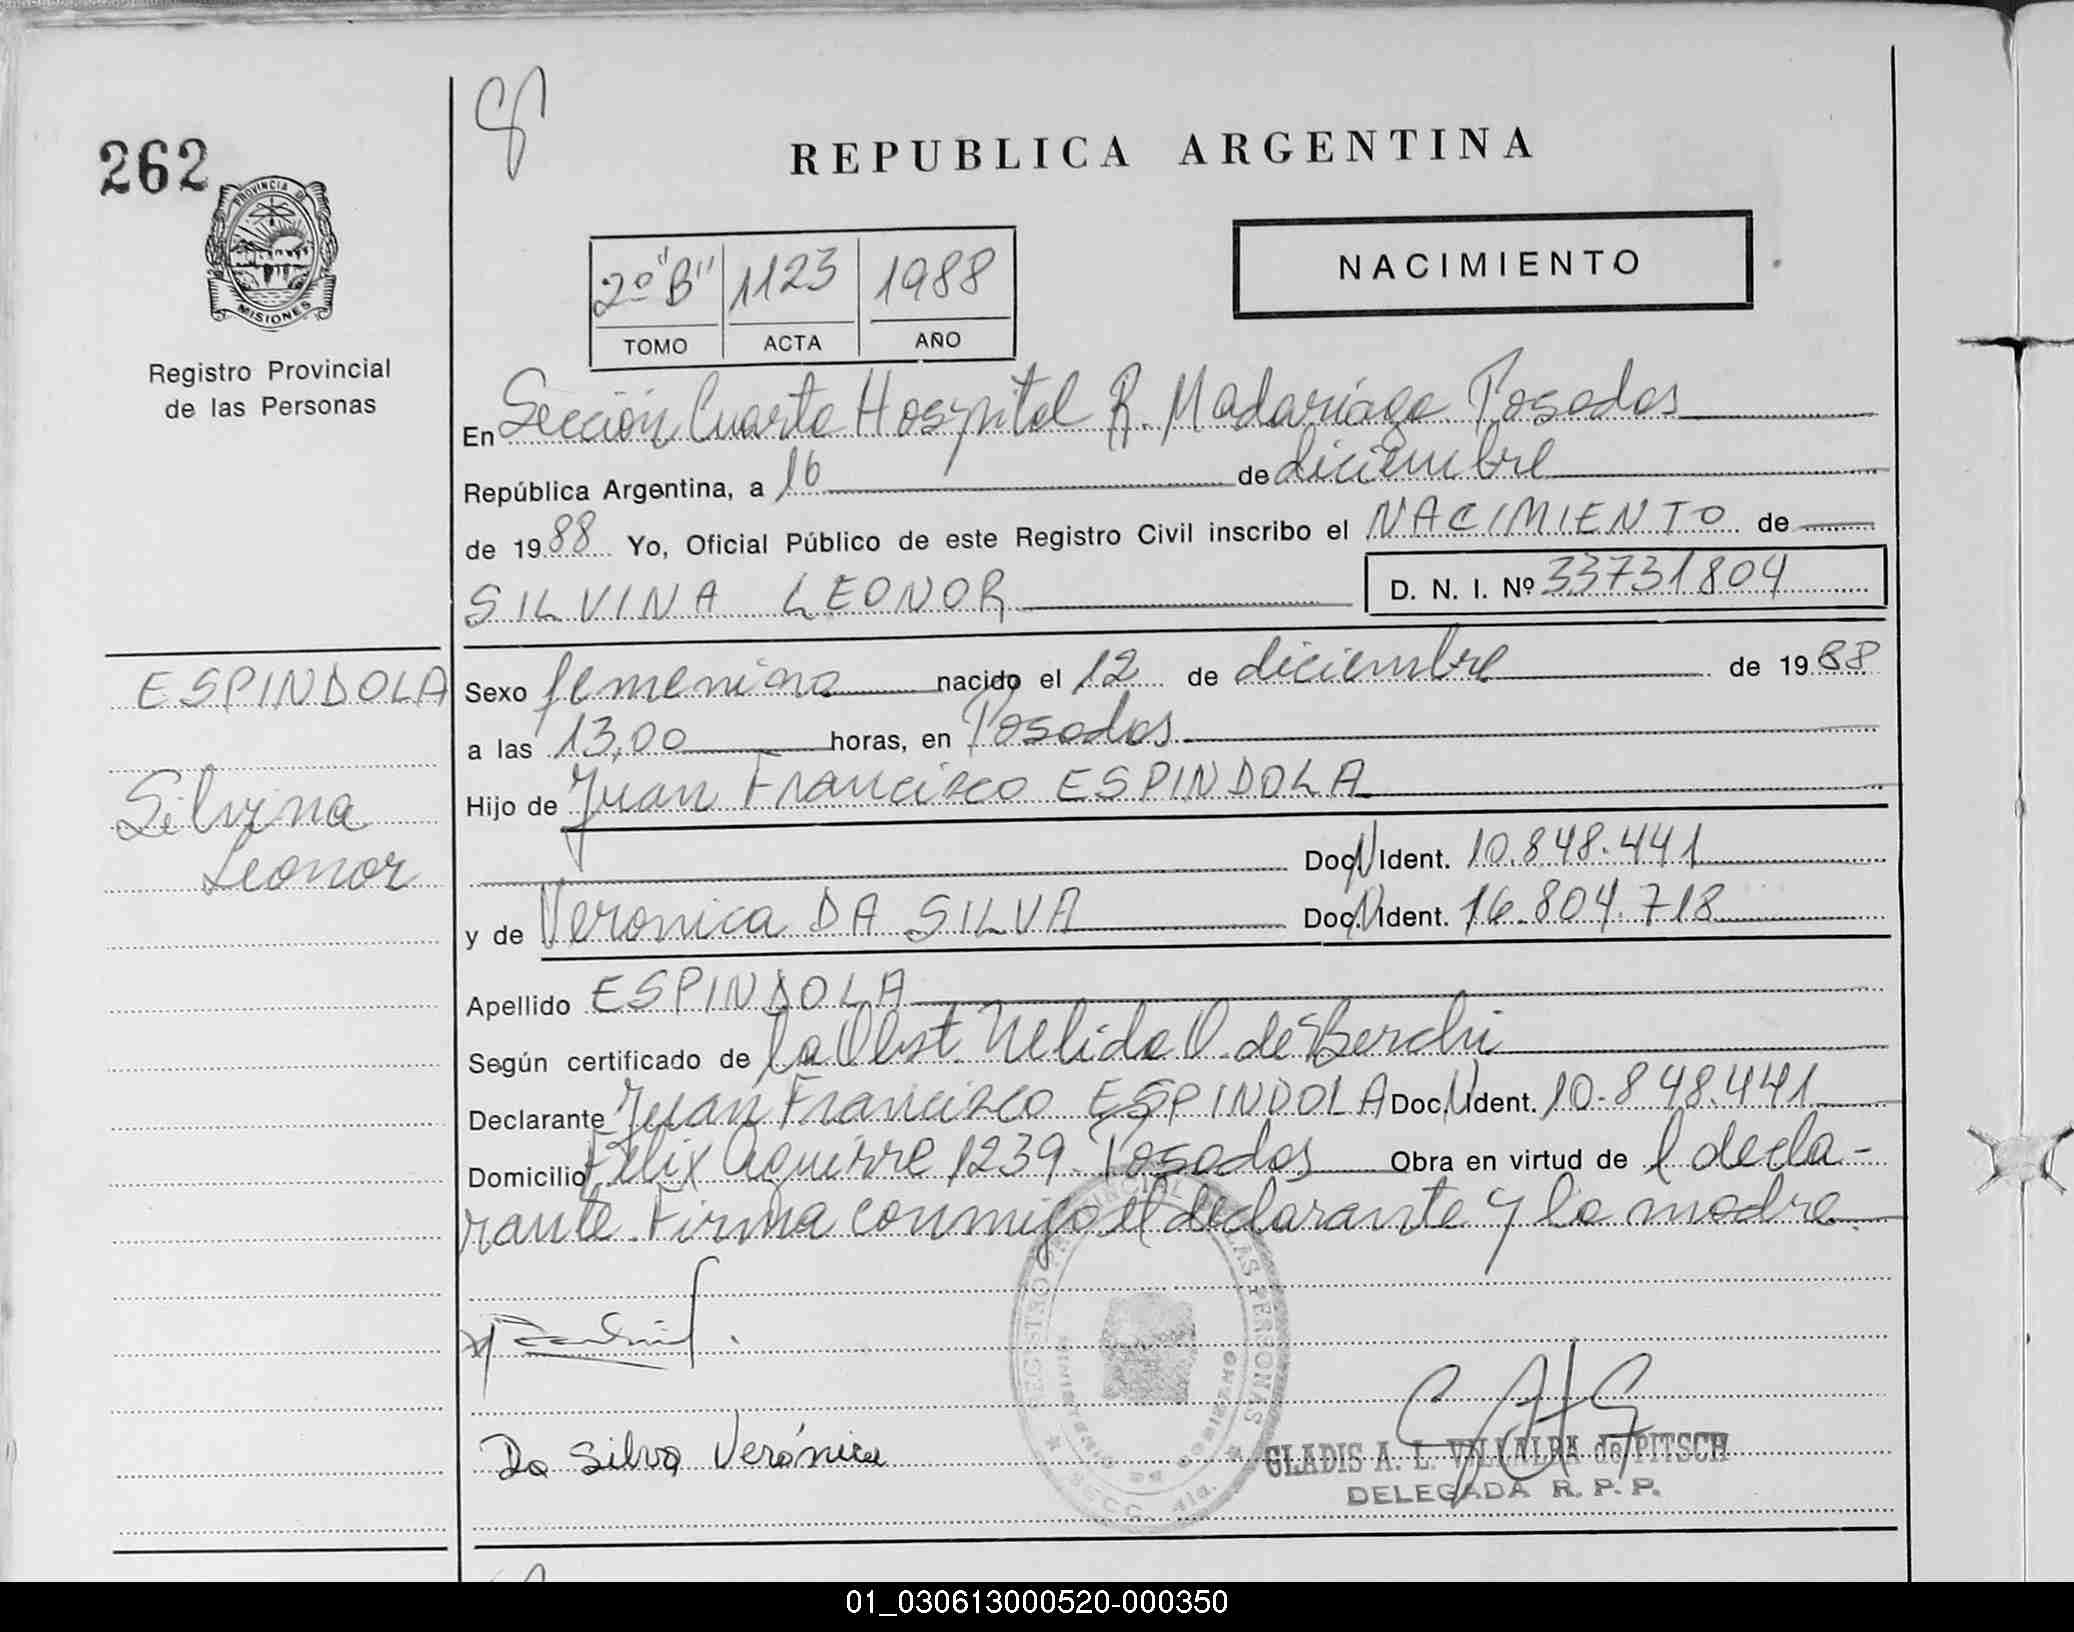 262
REPUBLICA ARGENTINA
PROVINCIA DE
MISIONES
Registro Provincial
de las Personas
2º "B" 1123 1988
TOMO ACTA AÑO
NACIMIENTO
En Sección Cuarta Hospital R. Madariaga Posadas
República Argentina, a 16 de diciembre
de 1988 Yo, Oficial Público de este Registro Civil inscribo el NACIMIENTO de
SILVINA LEONOR D. N. I. Nº 33731804
ESPINDOLA
Silvina
Leonor
Sexo femenino nacido el 12 de diciembre de 1988
a las 13,00 horas, en Posadas
Hijo de Juan Francisco ESPINDOLA
Doc. Ident. 10.848.441
y de Veronica DA SILVA Doc. Ident. 16.804.718
Apellido ESPINDOLA
Según certificado de la Obst. Nelida O. de Berchi
Declarante Juan Francisco ESPINDOLA Doc. Ident. 10.848.441
Domicilio Felix Aguirre 1239 Posadas Obra en virtud de l decla-
rante. Firma conmigo el declarante y la madre.
Da Silva Verónica
REGISTRO PROVINCIAL DE LAS PERSONAS
MINISTERIO DE GOBIERNO
SECC. 4ta.
GLADIS A. L. VILLALBA de PITSCH
DELEGADA R. P. P.
01_030613000520-000350